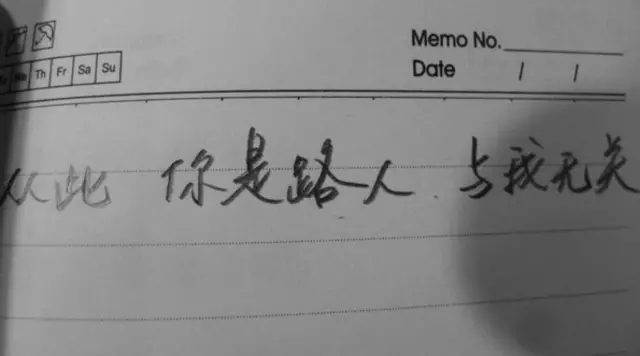 Memo No.
Th Fr Sa Su
Date / /
从此 你是路人. 与我无关